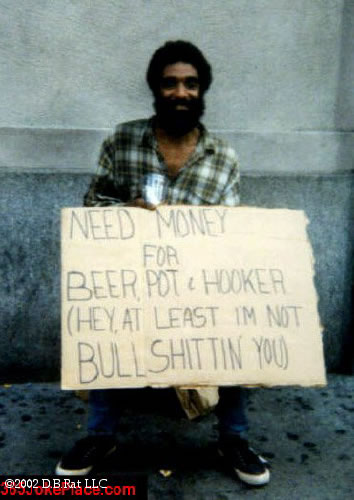 NEED MONEY
FOR
BEER, POT & HOOKER
(HEY, AT LEAST IM NOT
BULLSHITTIN' YOU)
©2002 D.B Rat LLC.
365JokePlace.com